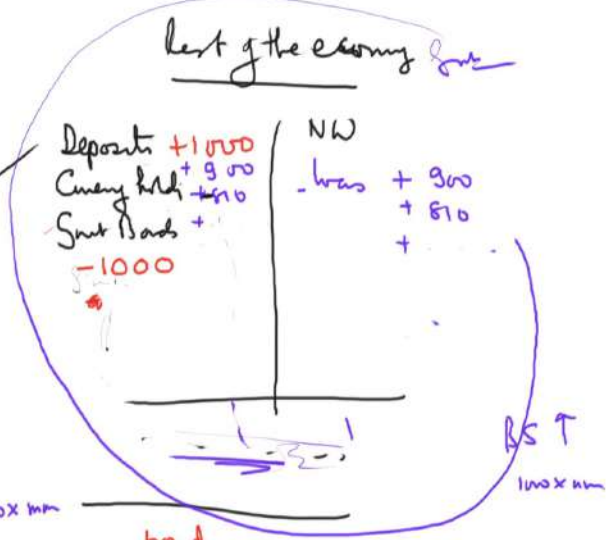 Rest of the economy
Deposits +1000
+ 900
Currency holds +810
Govt Bonds +
-1000
NW
- loans + 900
+ 810
+
BS ↑
1000 x mm
0x mm